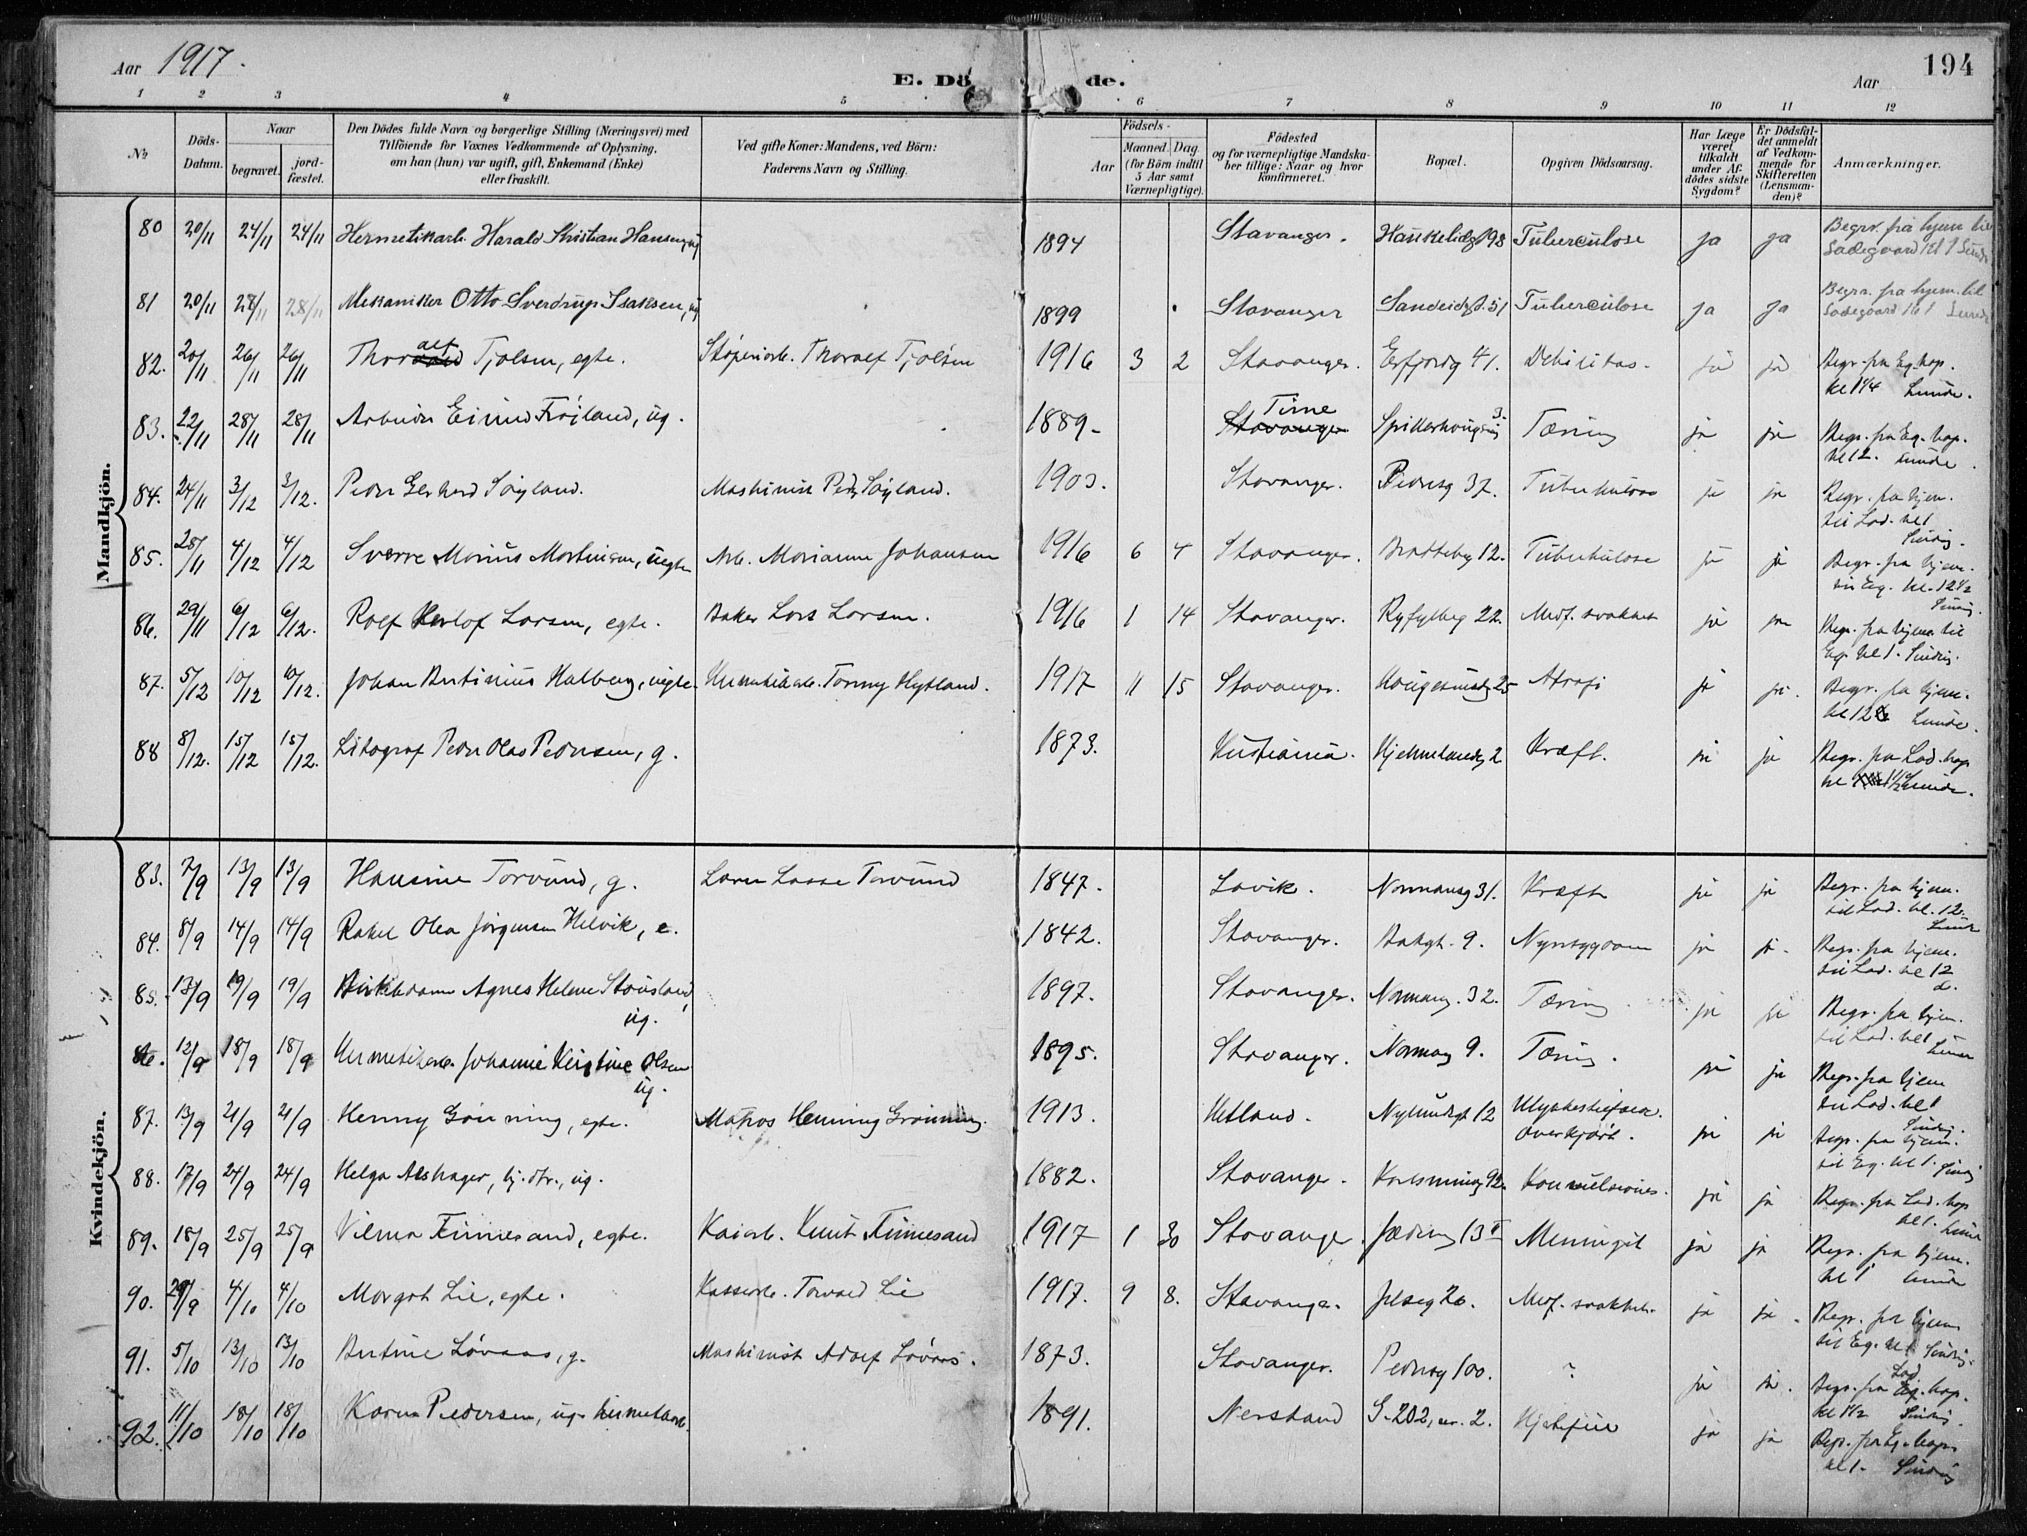 Aar 1917.
E. Dö de.
Aar
194
1 2 3 4 5 6 7 8 9 10 11 12
№
Döds-Datum.
Naar
begravet.
jord-fæstet.
Den Dödes fulde Navn og borgerlige Stilling (Næringsvei) med
Tilföiende for Voxnes Vedkommende af Oplysning,
om han (hun) var ugift, gift, Enkemand (Enke)
eller fraskilt.
Ved gifte Koner: Mandens, ved Börn:
Faderens Navn og Stilling.
Födsels-
Aar
Maaned. Dag.
(for Börn indtil
5 Aar samt
Værnepligtige).
Födested
og for værnepligtige Mandska-
ber tillige: Naar og hvor
konfirmeret.
Bopæl.
Opgiven Dödsaarsag.
Har Læge
været
tilkaldt
under Af-
dödes sidste
Sygdom?
Er Dödsfal-
det anmeldt
af Vedkom-
mende for
Skifteretten
(Lensman-
den)?
Anmærkninger.
Mandkjön.
80 20/11 24/11 24/11 Hermetikarb. Harald Kristian Hansen, ug 1894 Stavanger. Haukeligt 98 Tuberculose ja ja Begr. fra hjem til
Ladegaard kl 1 Lunde
81 20/11 28/11 28/11 Mekaniker Otto Sverdrup Isaksen, ug 1899 Stavanger Sandeidgt. 51 Tuberculose ja ja Begr. fra hjem til
Ladegaard kl 1 Lunde
82. 20/11 26/11 26/11 Thoralf Tjølsen, egte. Støperiarb. Thoralf Tjølsen 1916 3 2 Stavanger. Erfjordg 41. Debilitas. ja ja Begr. fra Eg. kap.
kl 1 1/4 Lunde.
83. 22/11 28/11 28/11 Arbeider Eivind Frøiland, ug. 1889 Time Stavanger Spilderhougsvg 3. Tæring ja ja Begr. fra Eg. kap.
kl 12. Lunde.
84. 24/11 3/12 3/12. Peder Gerhard Søyland. Maskinist Pedr Søyland. 1903. Stavanger. Pedersg 37. Tuberkulose ja ja Begr. fra hjem.
til Lad. kl 1
Sindig.
85. 28/11 4/12 4/12 Sverre Marius Martinsen, uegte Arb. Marianne Johansen 1916 6 4 Stavanger. Bratteberg 12. Tuberkulose ja ja Begr. fra hjem.
til Eg. kl. 12 1/2
Sindig.
86. 29/11 6/12 6/12. Rolf Herlof Larsen, egte. Baker Lars Larsen. 1916 1 14 Stavanger. Ryfylkeg 22. Medf. svakhet ja ja Begr. fra hjem til
Eg. kl 1. Sindig.
87. 5/12 10/12 10/12. Johan Bertinius Halberg, uegte. Hermetikarb. Tonny Hytland. 1917 11 15 Stavanger. Hougesundsg 25 Atrofi ja ja. Begr. fra hjem.
kl 12 Lunde.
88 8/12. 15/12 15/12. Litograf Peder Olas Pedersen, g. 1873. Kristiania. Hjelmelandsg 2 Kræft. ja ja Begr. fra Lad. kap
kl 1 1/2 Lunde.
Kvindekjön.
83. 7/9 13/9 13/9 Hansine Torvund, g. Laru Lasse Torvund 1847. Lavik. Normansg 31. Kræft ja ja Begr. fra hjem.
til Lad. kl. 12.
Lunde
84. 8/9 14/9 14/9 Rakel Olea Jørgensen Helvik, e. 1842. Stavanger. Bakgt. 9. Nyresygdom ja ja. Begr. fra hjem.
til Lad. kl 12
85. 13/9 19/9 19/9 Butikkdame Agnes Helene Stousland,
ug. 1897. Stavanger. Normansg. 32. Tæring ja ja Begr. fra hjem.
til Lad. kl 1
Lunde
86. 12/9 18/9 18/9 Hermetikarb. Johanne Kristine Olsen
ug. 1895. Stavanger. Normansg 9. Tæring. ja ja Begr. fra hjem
til Lad. kl 1
Sindig.
87. 13/9 21/9 21/9 Henny Grønning, egte. Matros Henning Grønning. 1913. Hetland. Nylundsgt 12 Ulykkestilfælde.
Overkjørt. ja ja Begr. fra hjem.
til Eg. kl 1. Sindig
88. 17/9 24/9 24/9 Helga Alshager, hj. dtr., ug. 1882. Stavanger. Karlsminneg 92. Konvulsiones. ja ja Begr. fra Lad. kap
kl 1. Lunde
89. 18/9 25/9 25/9 Vilma Finnesand, egte. Kaiarb. Knut Finnesand 1917 1 30 Stavanger. Jæderg 13 Meningit ja ja Begr. fra hjem.
kl 1 Lunde
90. 29/9 4/10 4/10 Margot Lie, egte. Kassearb. Torvald Lie 1917. 9 8. Stavanger. Jelsag 26. Medf. svakhet. ja ja. Begr. fra hjem
til Eg. kl 1 Sindig.
91. 5/10 13/10 13/10 Bertine Løvaas, g. Maskinist Adolf Løvaas. 1873. Stavanger. Pedersg 100. ? ja ja. Begr. fra Lad Eg. kap.
kl 1 1/2 Sindig.
92. 11/10 18/10 18/10 Karen Pedersen, ug. hermetarb. 1891. Nerstrand G. 202, nr. 2. Hjertefeil ja ja Begr. fra Eg. kap.
kl 1. Sindig